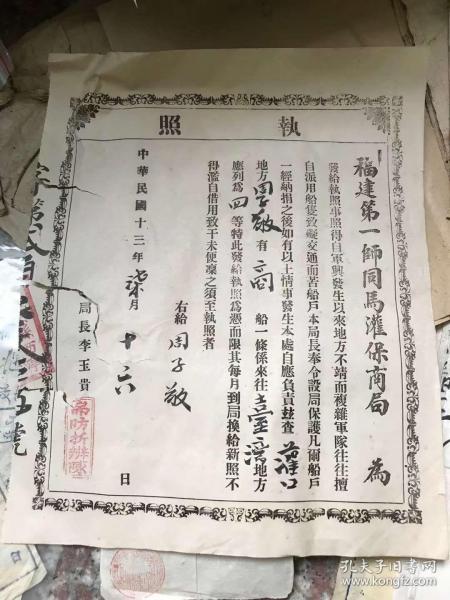 執照
福建第一師同馬灌保商局 為
發給執照事照得自軍興發生以來地方不靖而複雜軍隊往往擅
自派用船隻致礙交通而苦船戶本局長奉令設局保護凡爾船戶
一經納捐之後如有以上情事發生本處自應負責玆查 灌口
地方 周子敬 有 商 船一條係來往 臺灣 地方
應列為 四 等特此發給執照為憑而限其每月到局換給新照不
得濫自借用致干未便凜之須至執照者
右給 周子敬
局長李玉貴
中華民國十三年 柒 月 十六 日
孔夫子旧书网
www.kongfz.com